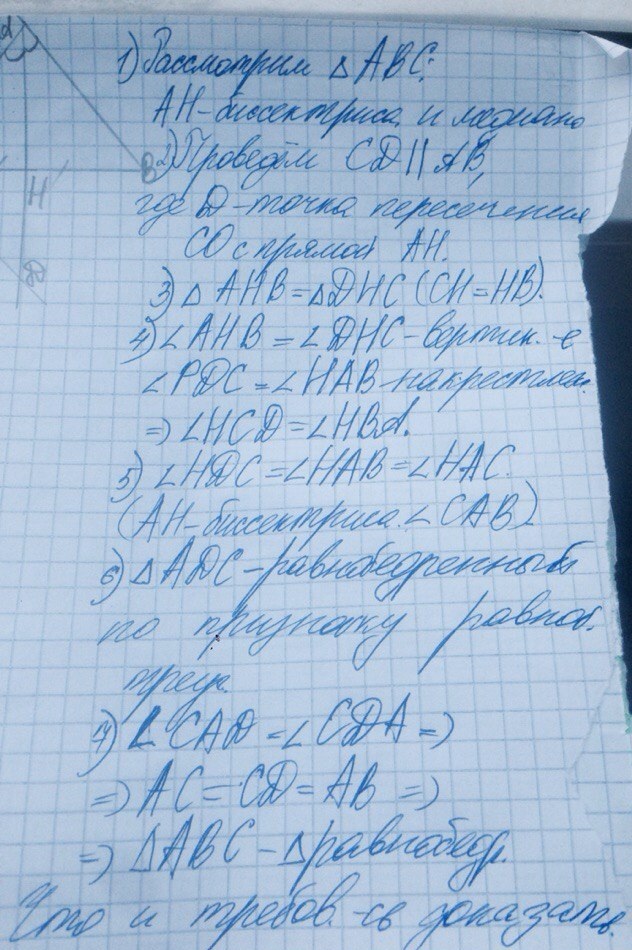 A
B
H
D
1) Рассмотрим △ABC:
AH-биссектриса и медиана
2) Проведём CD || AB,
где D-точка пересечения
CD с прямой AH.
3) △ AHB = △DHC (CH=HB).
4) ∠AHB = ∠DHC - вертик. -е
∠PDC = ∠HAB - накрест леж.
=> ∠HCD = ∠HBA.
5) ∠HDC = ∠HAB = ∠HAC.
(AH-биссектриса ∠CAB)
6) △ADC - равнобедренный
по признаку равноб.
треуг.
7) ∠CAD = ∠CDA =>
=> AC = CD = AB =>
=> △ABC - △равнобедр.
Что и требов.-сь доказать.